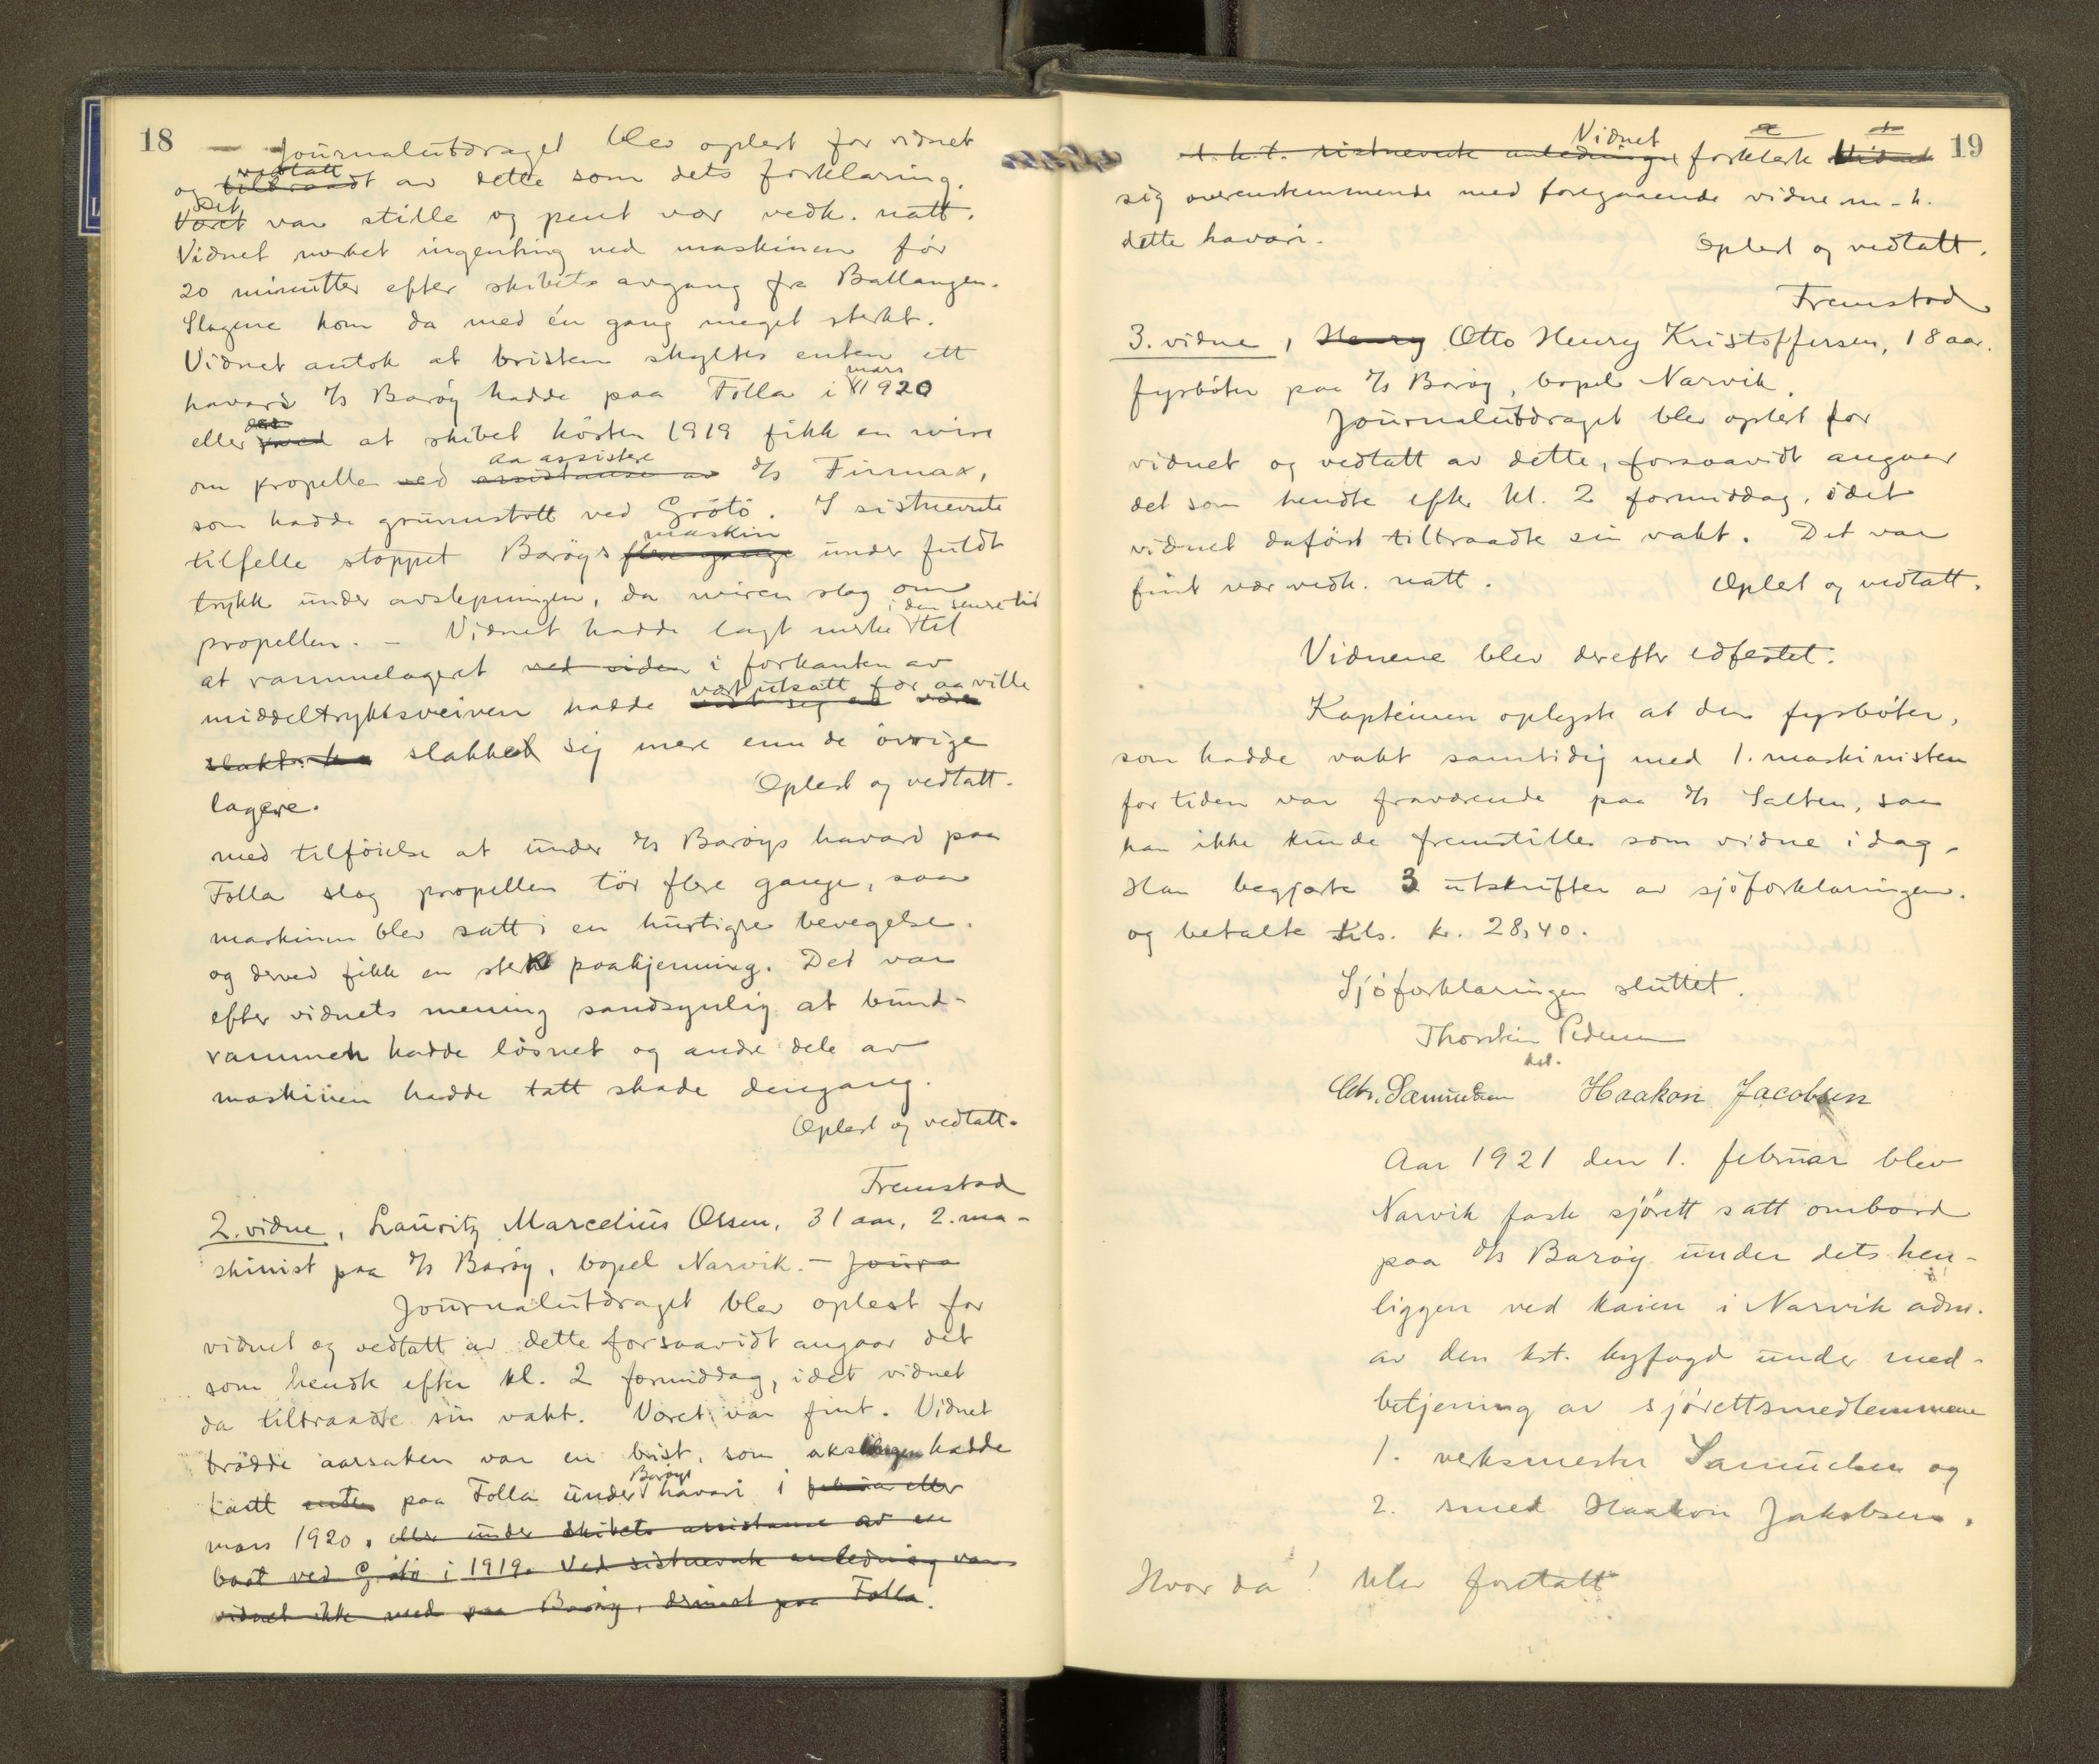 18
— Journalutdraget blev oplest for vidnet
vedtatt
og tiltraadt av dette som dets forklaring.
Det
Været var stille og pent vær vedk. natt.
Vidnet merket ingenting ved maskinen før
20 minutter efter skibets avgang fra Ballangen.
Slagene kom da med én gang meget sterkt.
Vidnet antok at bristen skyltes enten ett
mars
havari d/s Barøy hadde paa Folla i 1920
eller at skibet høsten 1919 fikk en wire
aa assistere
om propellen ved assistanse av d/s Finmax,
som hadde grunnstøtt ved Grøtø. I sistnevnte
maskin
tilfelle stoppet Barøys flere gange under fuldt
trykk under avslepningen, da wiren slog om
i den senere tid
propellen. — Vidnet hadde lagt merke til
at rammelageret ved siden i forkanten av
vært utsatt for aa ville
middeltryktsveiven hadde vist seg at være
slakket sig mere enn de øvrige
Oplest og vedtatt.
lagere.
med tilføielse at under d/s Barøys havari paa
Folla slog propellen tør flere gange, saa
maskinen blev satt i en hurtigre bevegelse.
og derved fikk en sterk paakjenning. Det var
efter vidnets mening sandsynlig at bund-
rammen hadde løsnet og andre dele av
maskinen hadde tatt skade dengang.
Oplest og vedtatt.
Fremstod
2. vidne, Lauritz Marcelius Olsen, 31 aar, 2. ma-
skinist paa d/s Barøy, bopel Narvik. — Journa
Journalutdraget blev oplest for
vidnet og vedtatt av dette forsaavidt angaar det
som hendte efter kl. 2 formiddag, idet vidnet
da tiltraadte sin vakt. Været var fint. Vidnet
trodde aarsaken var en brist, som akslingen hadde
Barøys
faatt enten paa Folla under havari i februar eller
mars 1920. eller under skibets assistanse av en
baat ved Grøtø i 1919. Ved sistnevnte anledning var
vidnet ikke med paa Barøy, derimot paa Folla.
19
Vidnet
m. h. t. sistnevnte anledninger forklarte Vidnet
sig overenstemmende med foregaaende vidne m. h.
dette havari.
Oplest og vedtatt.
Fremstod
3. vidne, Henry Otto Henry Kristoffersen, 18 aar.
fyrbøter paa d/s Barøy, bopel Narvik.
Journalutdraget blev oplest for
vidnet og vedtatt av dette, forsaavidt angaar
det som hendte efter kl. 2 formiddag, idet
vidnet da først tiltraadte sin vakt. Det var
fint vær vedk. natt.
Oplest og vedtatt.
Vidnene blev derefter edfestet.
Kapteinen oplyste at den fyrbøter,
som hadde vakt samtidig med 1. maskinisten
for tiden var fraværende paa d/s Salten, saa
han ikke kunde fremstilles som vidne i dag.
Han begjærte 3 utskrifter av sjøforklaringen.
og betalte tils. kr. 28,40.
Sjøforklaringen sluttet.
Thorstein Pedersen
kst.
Chr. Samuelsen Haakon Jacobsen
Aar 1921 den 1. februar blev
Narvik faste sjørett satt ombord
paa d/s Barøy under dets hen-
liggen ved kaien i Narvik adm.
av den kst. byfogd under med-
betjening av sjørettsmedlemmene
1. verksmester Samuelsen og
2. smed Haakon Jakobsen.
Hvor da! blev foretatt